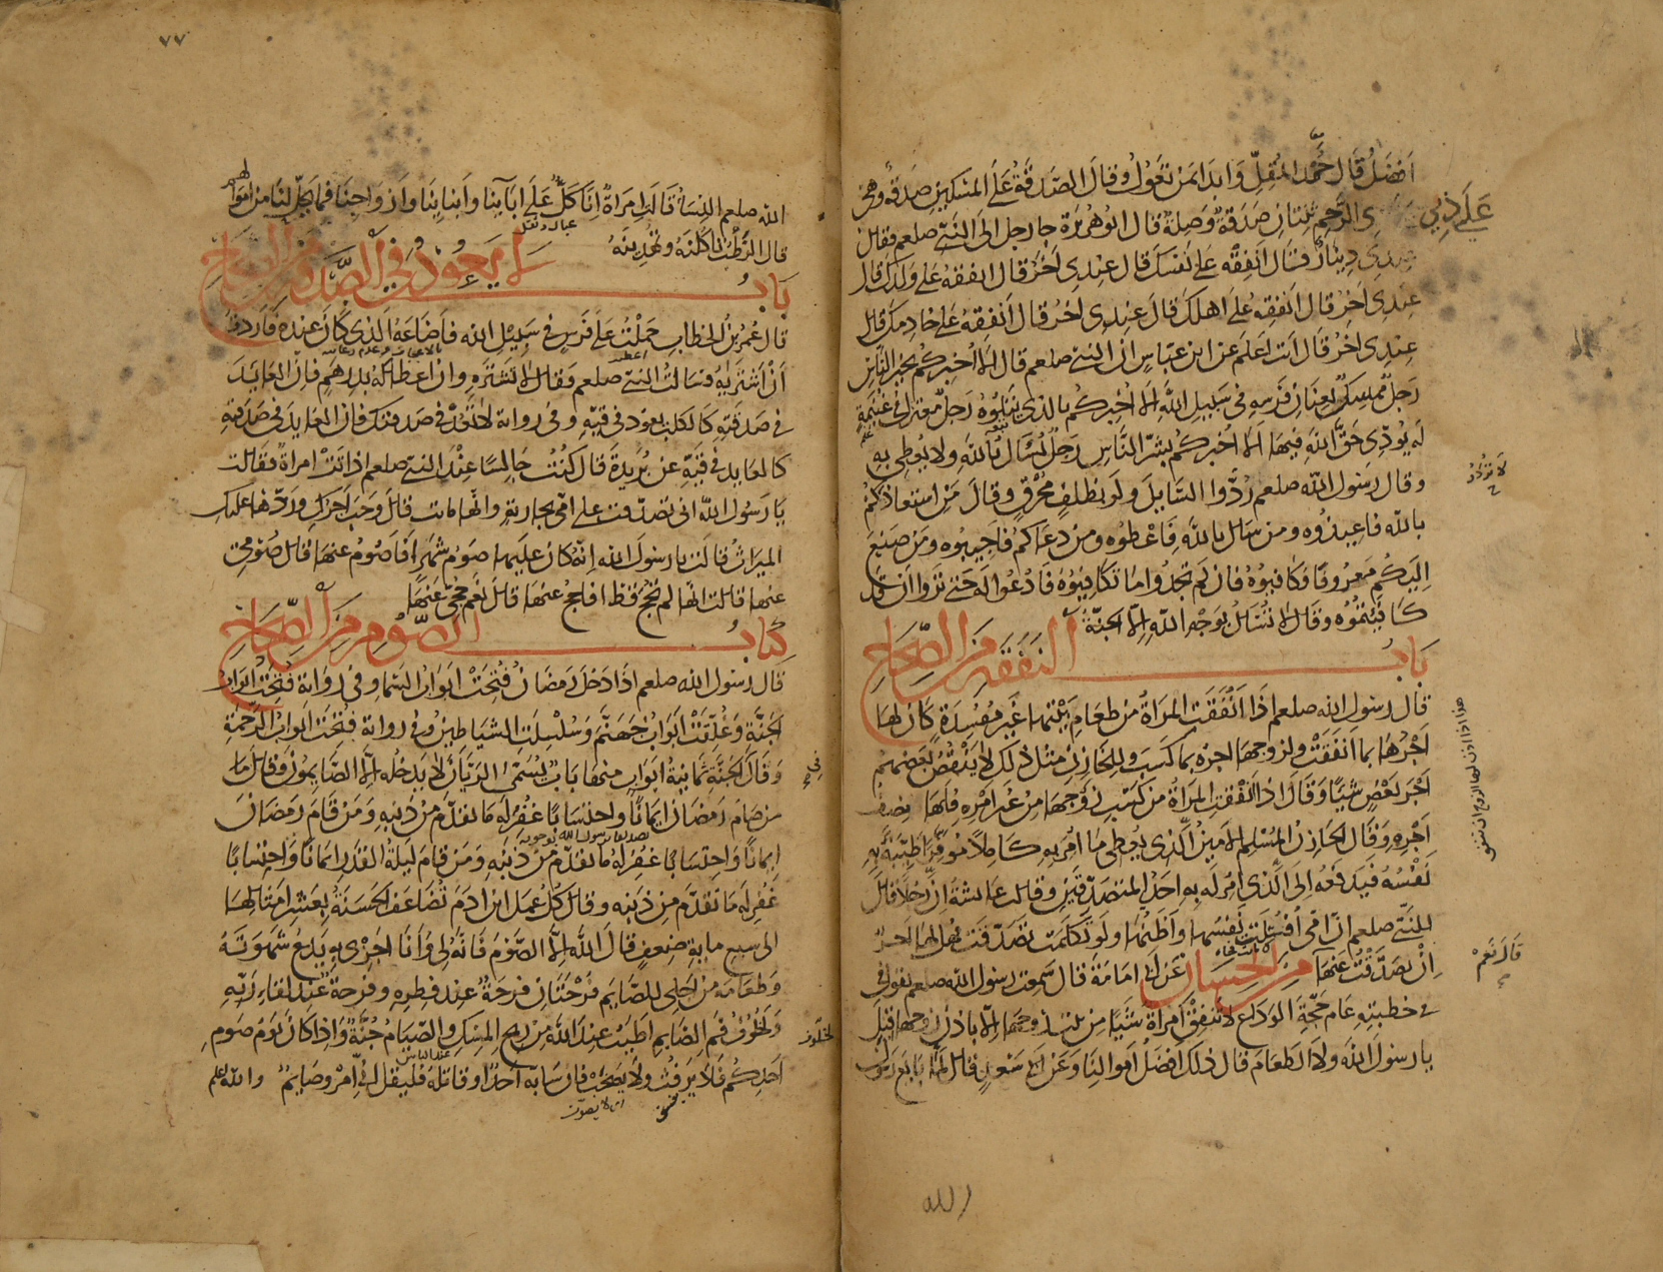 أفضل قال جهد المقل وابدا بمن تعول وقال الصدقة على المسكين صدقة وهي
على ذي الرحم ثنتان صدقة وصلة قال ابو هريرة جا رجل الى النبي صلعم فقال
عندي دينار فقال انفقه على نفسك قال عندي اخر قال انفقه على ولدك قال
عندي اخر قال انفقه على اهلك قال عندي اخر قال انفقه على خادمك قال
عندي اخر قال انت اعلم عن ابن عباس ان النبي صلعم قال الا اخبركم بخير الناس
رجل ممسك بعنان فرسه في سبيل الله الا اخبركم بالذي يتلوه رجل معتزل في غنيمة
له يؤدي حق الله فيها الا اخبركم بشر الناس رجل يسال بالله ولا يعطي به
وقال رسول الله صلعم ردوا السايل ولو بظلف محرق وقال من استعاذ منكم
بالله فاعيذوه ومن سال بالله فاعطوه ومن دعاكم فاجيبوه ومن صنع
اليكم معروفا فكافيوه فان لم تجدوا ما تكافيوه فادعوا له حتى تروا ان قد
كافيتموه وقال لا تسال بوجه الله الا الجنة
باب النفقة من الصحاح
قال رسول الله صلعم اذا انفقت المراة من طعام بيتها غير مفسدة كان لها
اجرها بما انفقت ولزوجها اجره بما كسب وللخازن مثل ذلك لا ينقص بعضهم
اجر بعض شيا وقال اذا انفقت المراة من كسب زوجها من غير امره فلها نصف
اجره وقال الخازن المسلم الامين الذي يعطي ما امر به كاملا موفرا طيبة به
نفسه فيدفعه الى الذي امر له به احد المتصدقين وقالت عايشة ان رجلا قال
للنبي صلعم ان امي افتلتت نفسها واظنها لو تكلمت تصدقت فهل لها اجر
ان تصدقت عنها من الحسان عن ابي امامة قال سمعت رسول الله صلعم يقول في
خطبته عام حجة الوداع لا تنفق امراة شيا من بيت زوجها الا باذن زوجها قيل
يا رسول الله ولا الطعام قال ذلك افضل اموالنا وعن سعد قال لما بايع رسول
لا تردوا
هذا اذا اذن لها الزوج
قال نعم
الله
٧٧
الله صلعم النسا قالت امراة انا كل على ابآينا وابناينا وازواجنا فما يحل لنا من اموالهم
قال الرطب تاكلنه وتهدينه
باب لا يعود في الصدقة من الصحاح
قال عمر بن الخطاب حملت على فرس في سبيل الله فاضاعه الذي كان عنده فاردت
ان اشتريه فسالت النبي صلعم فقال لا تشتره وان اعطاكه بدرهم فان العايد
في صدقته كالكلب يعود في قيه وفي رواية لا تعد في صدقتك فان العايد في صدقته
كالعايد في قيه عن بريدة قال كنت جالسا عند النبي صلعم اذ اتت امراة فقالت
يا رسول الله اني تصدقت على امي بجارية وانها ماتت قال وجب اجرك وردها عليك
الميراث قالت يا رسول الله انه كان عليها صوم شهر افاصوم عنها قال صومي
عنها قالت انها لم تحج قط افاحج عنها قال نعم حجي عنها
كتاب الصوم من الصحاح
قال رسول الله صلعم اذا دخل رمضان فتحت ابواب السما وفي رواية فتحت ابواب
الجنة وغلقت ابواب جهنم وسلسلت الشياطين وفي رواية فتحت ابواب الرحمة
وقال الجنة ثمانية ابواب منها باب يسمى الريان لا يدخله الا الصايمون وقال
من صام رمضان ايمانا واحتسابا غفر له ما تقدم من ذنبه ومن قام رمضان
ايمانا واحتسابا غفر له ما تقدم من ذنبه ومن قام ليلة القدر ايمانا واحتسابا
غفر له ما تقدم من ذنبه وقال كل عمل ابن ادم تضاعف الحسنة بعشر امثالها
الى سبع ماية ضعف قال الله الا الصوم فانه لي وانا اجزي به يدع شهوته
وطعامه من اجلي للصايم فرحتان فرحة عند فطره وفرحة عند لقاء ربه
ولخلوف فم الصايم اطيب عند الله من ريح المسك والصيام جنة واذا كان يوم صوم
احدكم فلا يرفث ولا يصخب فان سابه احد او قاتله فليقل اني امرؤ صايم والله اعلم
في
لخلوف
اي لا يصوت